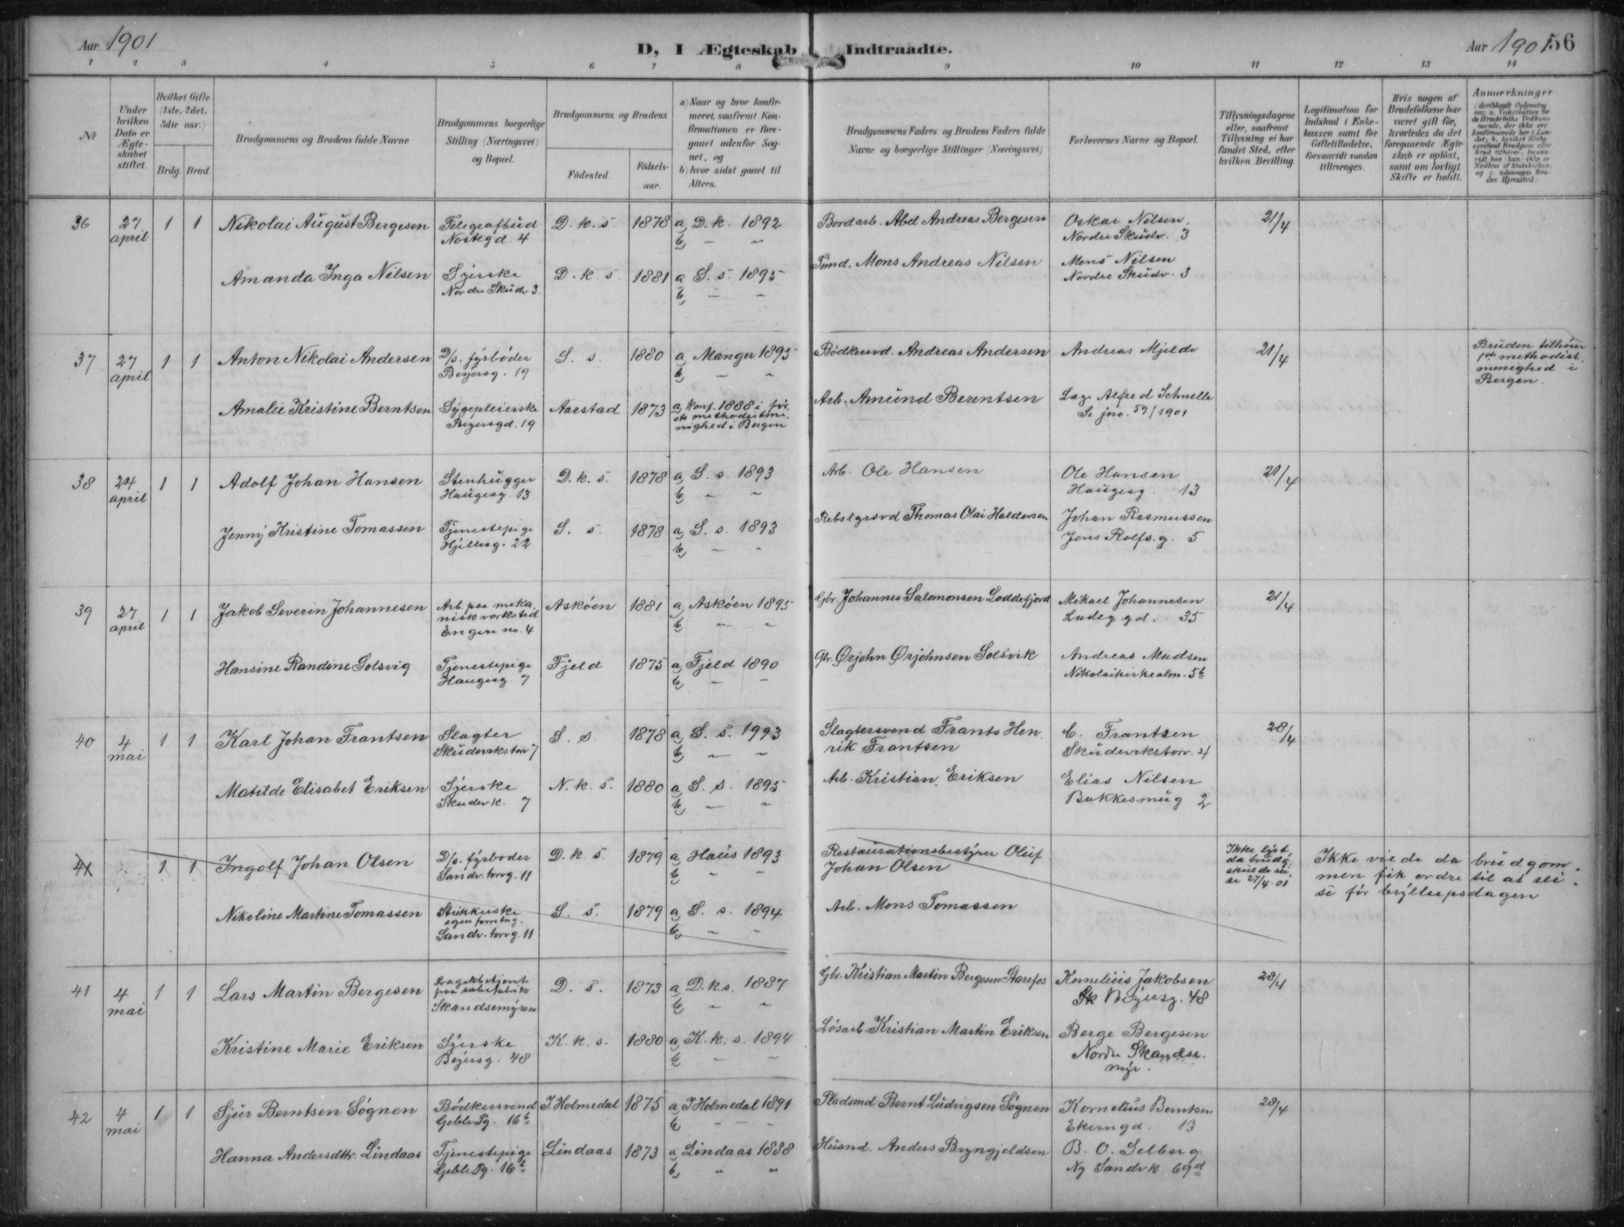 Aar 1901
D, I Ægteskab Indtraadte.
Aar 1901 56
1 2 3 4 5 6 7 8 9 10 11 12 13 14
No
Under hvilken Dato er Ægteskabet stiftet.
Hvilket Gifte (1ste, 2det, 3die osv.)
Brdg. Brud.
Brudgommens og Brudens fulde Navne
Brudgommens borgerlige Stilling (Næringsvei) og Bopæl.
Brudgommens og Brudens
Fødested.
Fødselsaar.
a) Naar og hvor konfirmeret, saafremt Konfirmationen er foregaaet udenfor Sognet, og
b) hvor sidst gaaet til Alters.
Brudgommens Faders og Brudens Faders fulde Navne og borgerlige Stillinger (Næringsvei)
Forlovernes Navne og Bopæl.
Tillysningsdagene eller, saafremt Tillysning ei har fundet Sted, efter hvilken Bevilling.
Legitimation for Indskud i Enkekassen samt for Giftetilladelse, forsaavidt saadan tiltrænges.
Hvis nogen af Brudefolkene har været gift før, hvorledes da det foregaaende Ægteskab er opløst, samt om lovligt Skifte er holdt.
Anmærkninger
36
27 april
1 1
Nikolai August Bergesen
Telegrafbud
Nostegd. 4
D. k. s. 1878
a, D. k. 1892
b, " "
Bordarb. Abel Andreas Bergesen
Oskar Nilsen
Nordre Skudv. 3
21/4
Amanda Inga Nilsen
Syerske
Nordre Skudv 3.
D. k. s. 1881
a S. s. 1895
b, " "
Tømd. Mons Andreas Nilsen
Mons Nilsen
Nordre Skudv. 3
37
27 april
1 1
Anton Nikolai Andersen
D/s. fyrbøder
Beyersg. 19
S. s. 1880
a, Manger 1895
b, " "
Bødkersvd. Andreas Andersen
Andreas Mjelde
21/4
Bruden tilhører
1ste methodist
menighed i
Bergen.
Amalie Kristine Berntsen
Sygepleierske
Beyersgd. 19
Aarstad 1873
a, konf. 1888 i før
ste methodistme
nighed i Bergen
Arb. Amund Berentsen
Læge Alfred Schnelle
Se jno. 59/1901
38
24 april
1 1
Adolf Johan Hansen
Stenhugger
Haugesg. 13
D. k. s. 1878
a, S. s. 1893
b, " "
Arb. Ole Hansen
Ole Hansen
Haugesg. 13
21/4
Jenny Kristine Tomassen
Tjenestepige
Hjellesg. 22
S. s. 1878
a, S. s. 1893
b, " "
Rebslgrsvd Thomas Olai Haldorsen
Johan Rasmussen
Jens Rolfs. g. 5
39
27 april
1 1
Jakob Severin Johannesen
Arb. paa meka
nisk værksted
Engen no. 4
Askøen 1881
a, Askøen 1895
b, " "
Gbr. Johannes Salomonsen Loddefjord
Mikael Johannesen
Ladeggd. 35
21/4
Hansine Randine Solsvig
Tjenestepige
Haugesg 7
Fjeld 1875
a, Fjeld 1890
b, " "
Gbr. Ørjohn Ørjohnsen Solsvik
Andreas Madsen
Nikolaikirkealm. 5b
40
4 mai
1 1
Karl Johan Frantsen
Slagter
Skudevikstorv 7
S. s. 1878
a, S. s. 1993
b, " "
Slagtersvend Frants Hen
rik Frantsen
C. Frantsen
Skudevikstorv. 4
28/4
Matilde Elisabet Eriksen
Syerske
Skudevk. 7
N. k. s. 1880
a, S. s. 1895
b, " "
Arb. Kristian Eriksen
Elias Nilsen
Bakkesmug 2
41
1 1
Ingolf Johan Olsen
D/s. fyrbøder
Sandv. torvg. 11
D. k. s. 1879
a, Haus 1893
b, " "
Restaurationsbestyrer Oluf
Johan Olsen
Ikke lyst,
da brudg.
skulde rei
se 27/4 01
Ikke viede da brudgom
men fik ordre til at rei
se før bryllupsdagen
Nikoline Martine Tomassen
Strikkerske
egen forretng.
Sandv. torvg. 11
S. s. 1879
a, S. s. 1894
b, " "
Arb. Mons Tomassen
41
4 mai
1 1
Lars Martin Bergesen
Skandsemyren
D. s. 1873
a, D. k s. 1887
b, " "
Gbr. Kristian Martin Bergesen Starefos
Kornelius Jakobsen
Beyersg. 48
28/4
Kristine Marie Eriksen
Syerske
Beyersg. 48
K. k. s. 1880
a, K. k. s. 1894
b, " "
Løsarb. Kristian Martin Eriksen
Berge Bergesen
Nordre Skandse.
myr.
42
4 mai
1 1
Sjur Berntsen Sögnen
Bødkersvend
Geble Pg. 16b
I Holmedal 1875
a, I Holmedal 1891
b, " "
Pladsmd Bernt Ludvigsen Sögnen
Kornelius Berntsen
Ekerngd. 13
28/4
Hanna Andersdttr. Lindaas
Tjenestepige
Geble Pg. 16b
Lindaas 1873
a, Lindaas 1888
b, " "
Husmd. Anders Bryngjeldsen
B. O. Selberg
Ny Sandvk. 69d